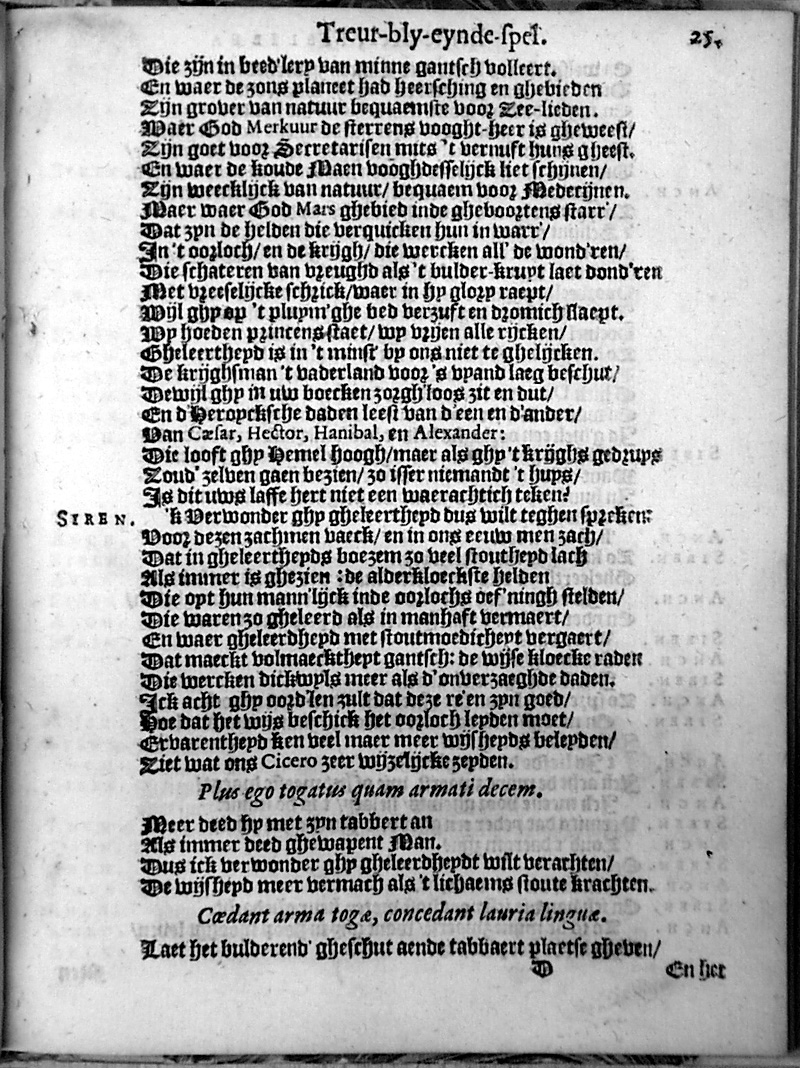 Treur-bly-eynde-spel. 25.
Die zijn in beed'lery van minne gantsch volleert.
En waer de zons planeet had heersching en ghebieden
Zijn grover van natuur bequaemste voor Zee-lieden.
Waer God Merkuur de sterrens vooght-heer is gheweest/
Zijn goet voor Secretarisen mits 't vernuft huns gheest.
En waer de koude Maen vooghdesselijck liet schijnen/
Zijn weecklijck van natuur/ bequaem voor Medecijnen.
Maer waer God Mars ghebied inde gheboortens starr'/
Dat zyn de helden die verquicken hun in warr'/
In 't oorloch/ en de krijgh/ die wercken all' de wond'ren/
Die schateren van vreughd als 't bulder-kruyt laet dond'ren
Met vreeselijcke schrick/waer in hy glory raept/
Wijl ghy op 't pluym'ghe bed verzuft en dromich slaept.
Wy hoeden princens staet/ wy vrijen alle rijcken/
Gheleertheyd is in 't minst by ons niet te ghelijcken.
De krijghsman 't vaderland voor 's vyand laeg beschut/
Dewijl ghy in uw boecken zorgh'loos zit en dut/
En d'Heroycksche daden leest van d'een en d'ander/
Van Cæsar, Hector, Hanibal, en Alexander:
Die looft ghy Hemel hoogh/maer als ghy 't krijghs gedruys
Zoud' zelven gaen bezien/ zo isser niemandt 't huys/
Is dit uws laffe hert niet een waerachtich teken?
SIREN. 'k Verwonder ghy gheleertheyd dus wilt teghen spreken:
Voor dezen zachmen vaeck/ en in ons eeuw men zach/
Dat in gheleertheyds boezem zo veel stoutheyd lach
Als immer is ghezien : de alderkloeckste helden
Die opt hun mann'lijck inde oorlochs oef'ningh stelden/
Die waren zo gheleerd als in manhaft vermaert/
En waer gheleerdheyd met stoutmoedicheyt vergaert/
Dat maeckt volmaecktheyt gantsch: de wijse kloecke raden
Die wercken dickwyls meer als d'onverzaeghde daden.
Ick acht ghy oord'len zult dat deze re'en zyn goed/
Hoe dat het wijs beschick het oorloch leyden moet/
Ervarentheyd ken veel maer meer wijsheyds beleyden/
Ziet wat ons Cicero zeer wijzelijcke zeyden.
Plus ego togatus quam armati decem.
Meer deed hy met zyn tabbert an
Als immer deed ghewapent Man.
Dus ick verwonder ghy gheleerdheydt wilt verachten/
De wijsheyd meer vermach als 't lichaems stoute krachten.
Cœdant arma togæ, concedant lauria linguæ.
Laet het bulderend' gheschut aende tabbaert plaetse gheven/
D En het